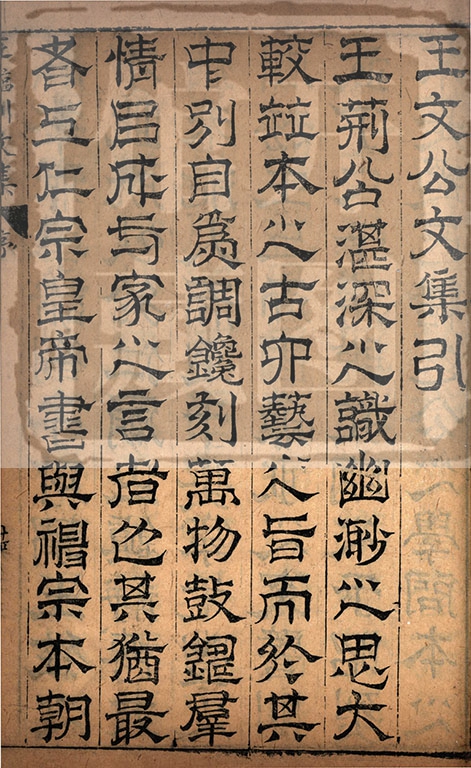 王文公文集引
王荊公湛深之識幽渺之思大
較竝本之古六藝之旨而於其
中別自爲調鑱刻萬物鼓鑄羣
情㠯成一家之言者也其猶最
者上仁宗皇帝書與神宗本朝